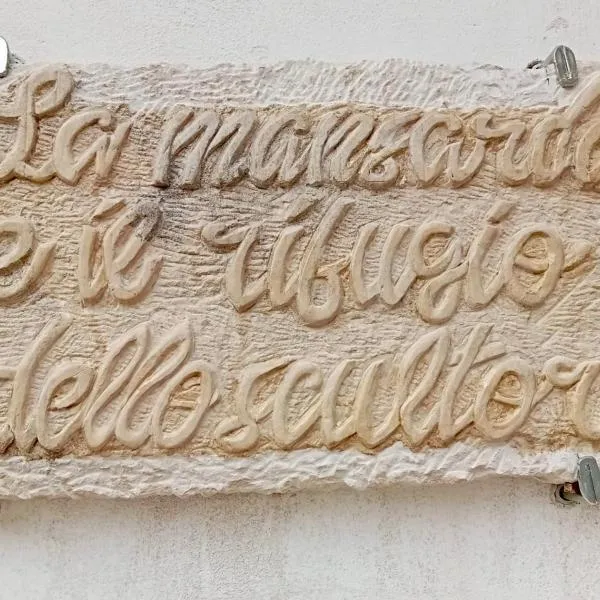 La mansarda
e il rifugio
dello scultor